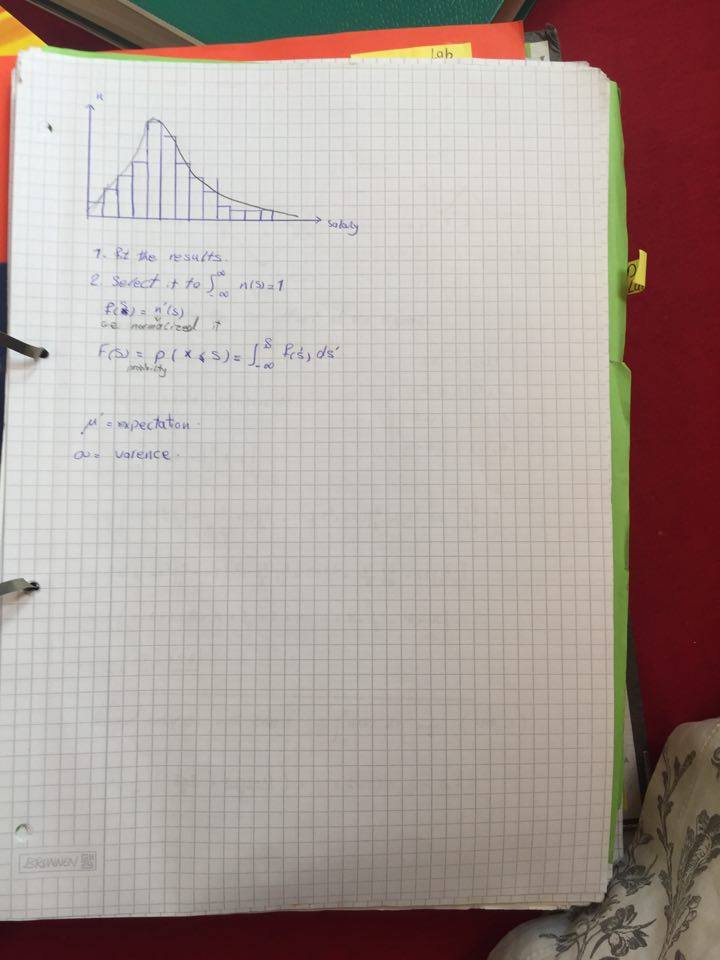 lab
n
Salary
1. fit the results.
2. Select it to ∫_{-∞}^{∞} n(s)=1
f(s) = n'(s)
we normalized it
F(s) = p (x ≤ s) = ∫_{-∞}^{s} f(s') ds'
probability
μ = expectation.
σ = varence.
BRUNNEN